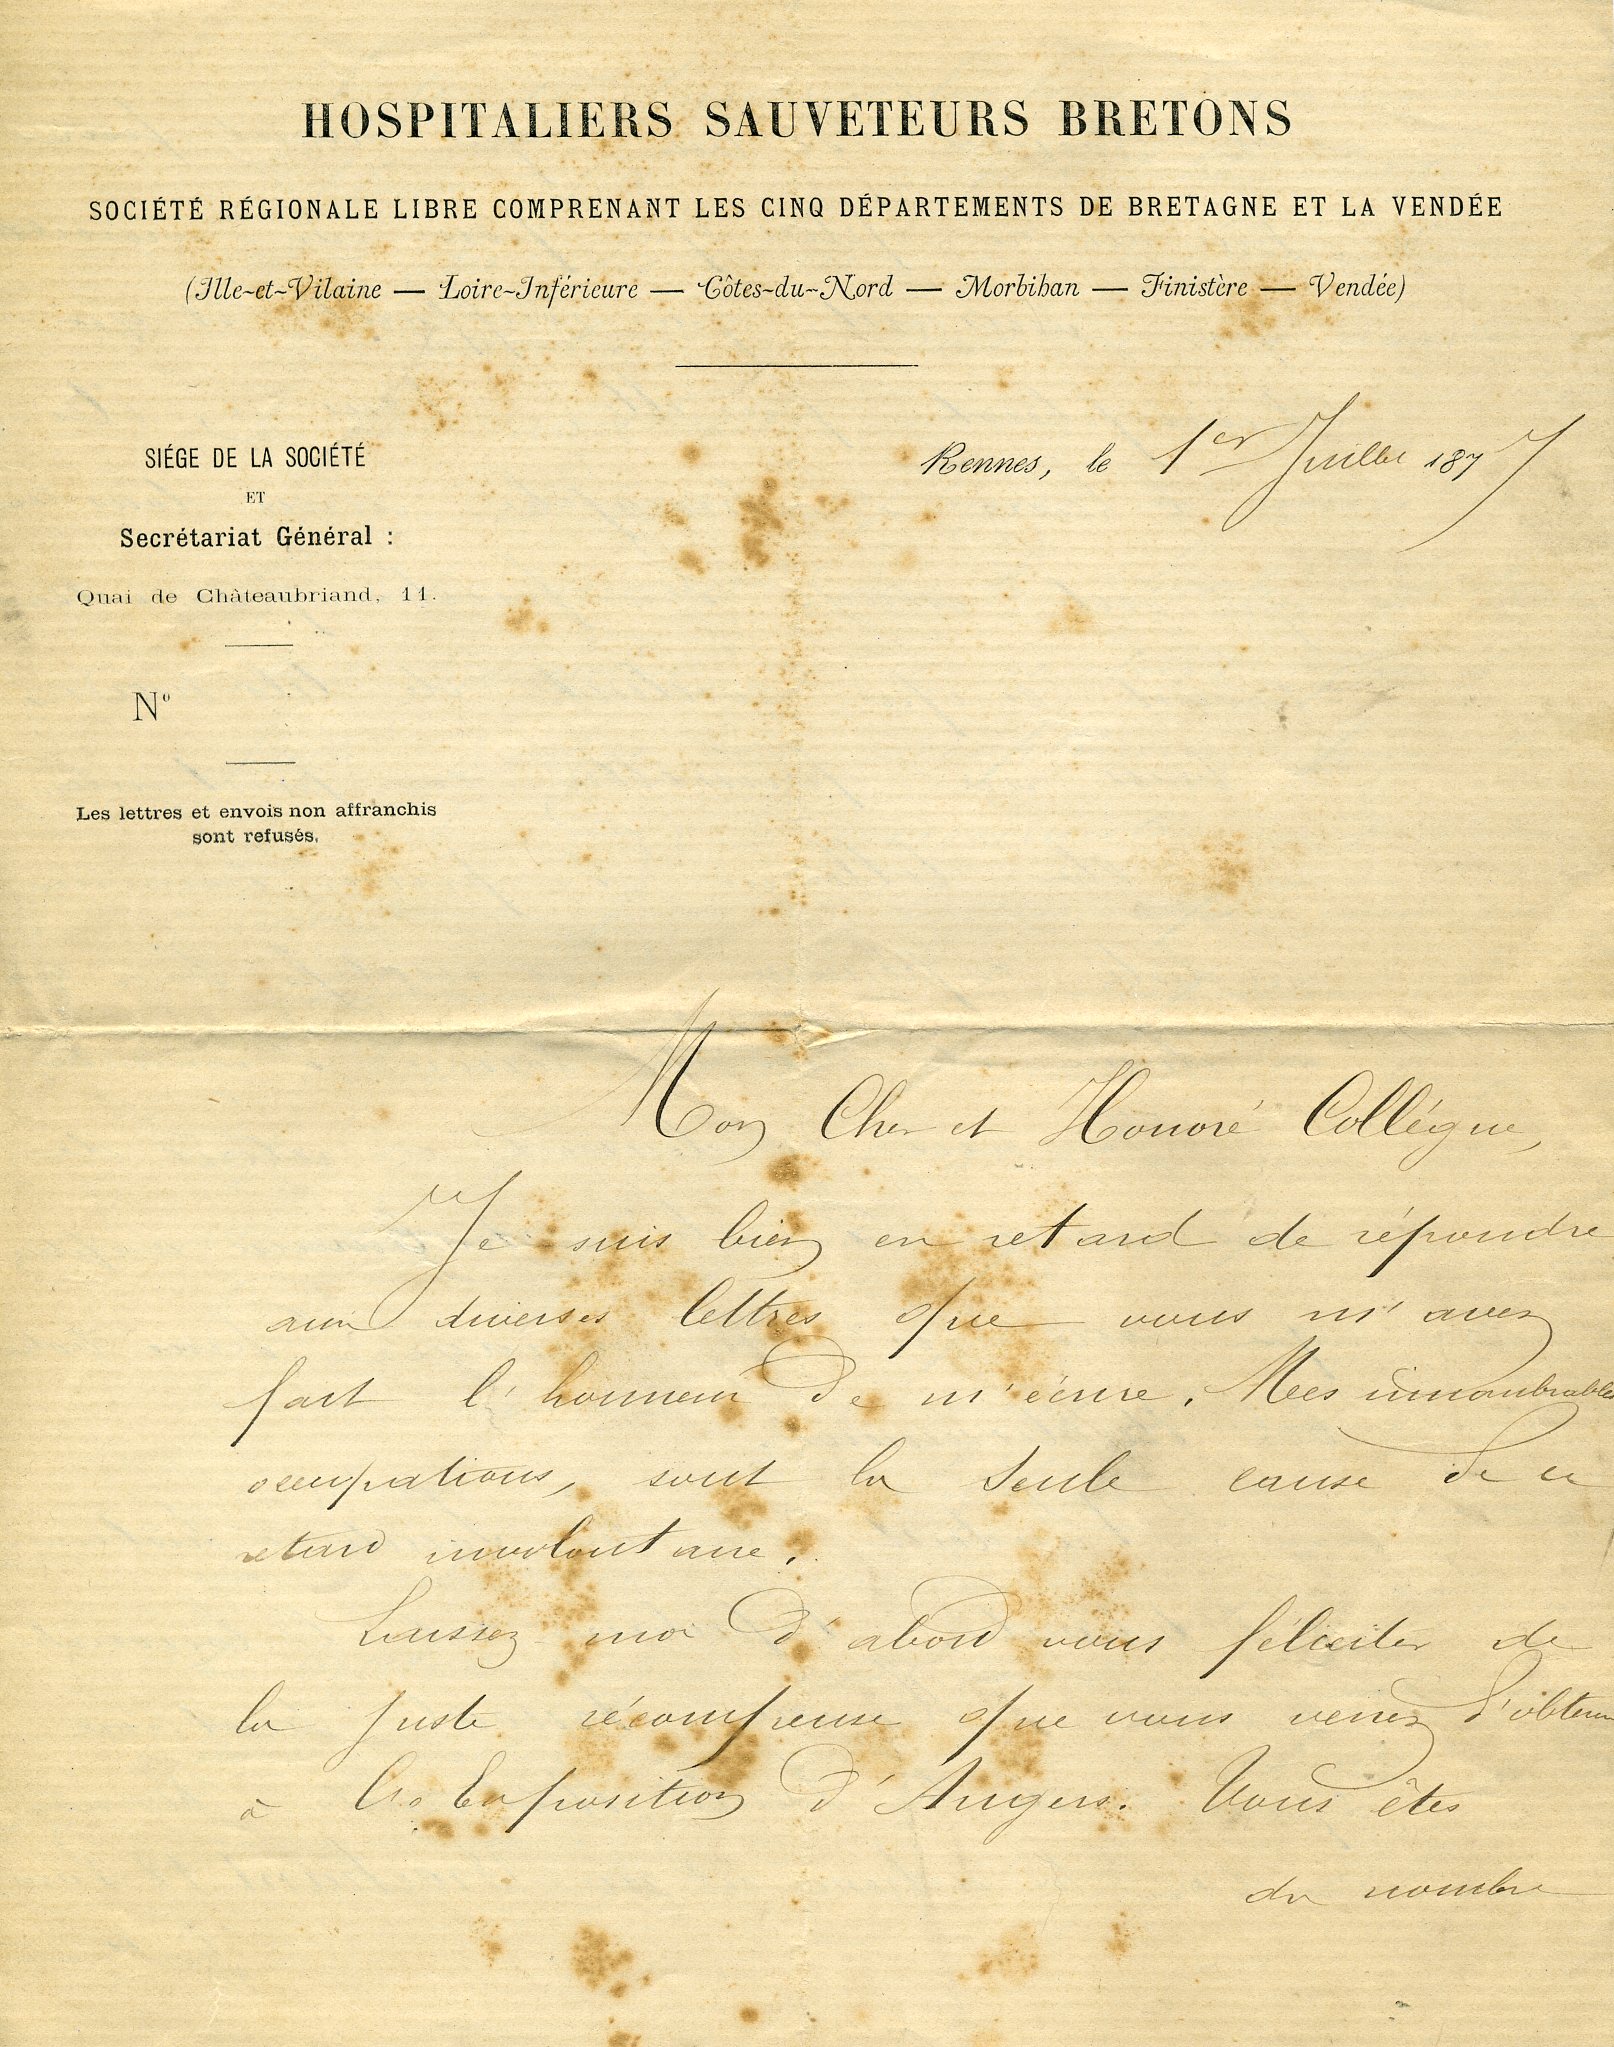 HOSPITALIERS SAUVETEURS BRETONS
SOCIÉTÉ RÉGIONALE LIBRE COMPRENANT LES CINQ DÉPARTEMENTS DE BRETAGNE ET LA VENDÉE
(Ille-et-Vilaine — Loire-Inférieure — Côtes-du-Nord — Morbihan — Finistère — Vendée)
Rennes, le 1er Juillet 1877
SIÉGE DE LA SOCIÉTÉ
ET
Secrétariat Général :
Quai de Châteaubriand, 11.
No
Les lettres et envois non affranchis
sont refusés.
Mon Cher et Honoré Collégue,
Je suis bien en retard de répondre
aux diverses lettres que vous m'avez
fait l'honneur de m'écrire. Mes innombrables
occupations, sont la seule cause de ce
retard involontaire.
Laissez moi d'abord vous féliciter de
la juste récompense que vous venez d'obtenir
à l'Exposition d'Angers. Vous êtes
du nombre